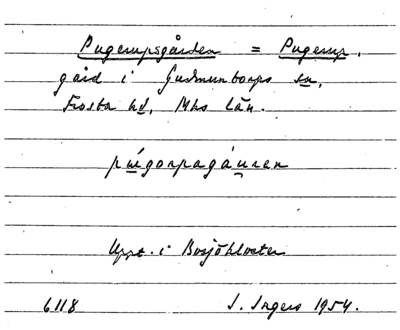 Pugerupsgården = Pugerup,
gård i Gudmuntorps sn,
Frosta hd, Mhs län.
Uppt. i Bosjökloster
6118 I. Ingers 1954.